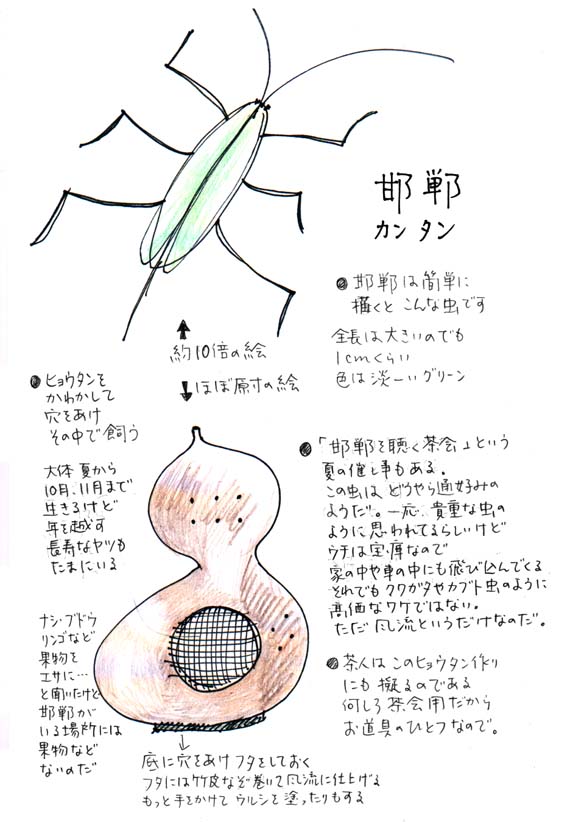 邯鄲
カンタン
● 邯鄲は簡単に
描くと こんな虫です
全長は大きいのでも
1cmくらい
色は淡ーいグリーン
↑
約10倍の絵
↓ほぼ原寸の絵
● ヒョウタンを
かわかして
穴をあけ
その中で飼う
大体 夏から
10月、11月まで
生きるけど
年を越す
長寿なヤツも
たまにいる
ナシ・ブドウ
リンゴなど
果物を
エサに…
と聞いたけど
邯鄲が
いる場所には
果物など
ないのだ
● 「邯鄲を聴く茶会」という
夏の催し事もある。
この虫は どうやら通好みの
ようだ。一応、貴重な虫の
ように思われてるらしいけど
ウチは宝庫なので
家の中や車の中にも飛び込んでくる
それでもクワガタやカブト虫のように
高価なワケではない。
ただ風流というだけなのだ。
● 茶人は このヒョウタン作り
にも 凝るのである
何しろ茶会用だから
お道具のひとつなので。
↓
底に穴をあけフタをしておく
フタには竹皮など巻いて風流に仕上げる
もっと手をかけて ウルシを塗ったりもする